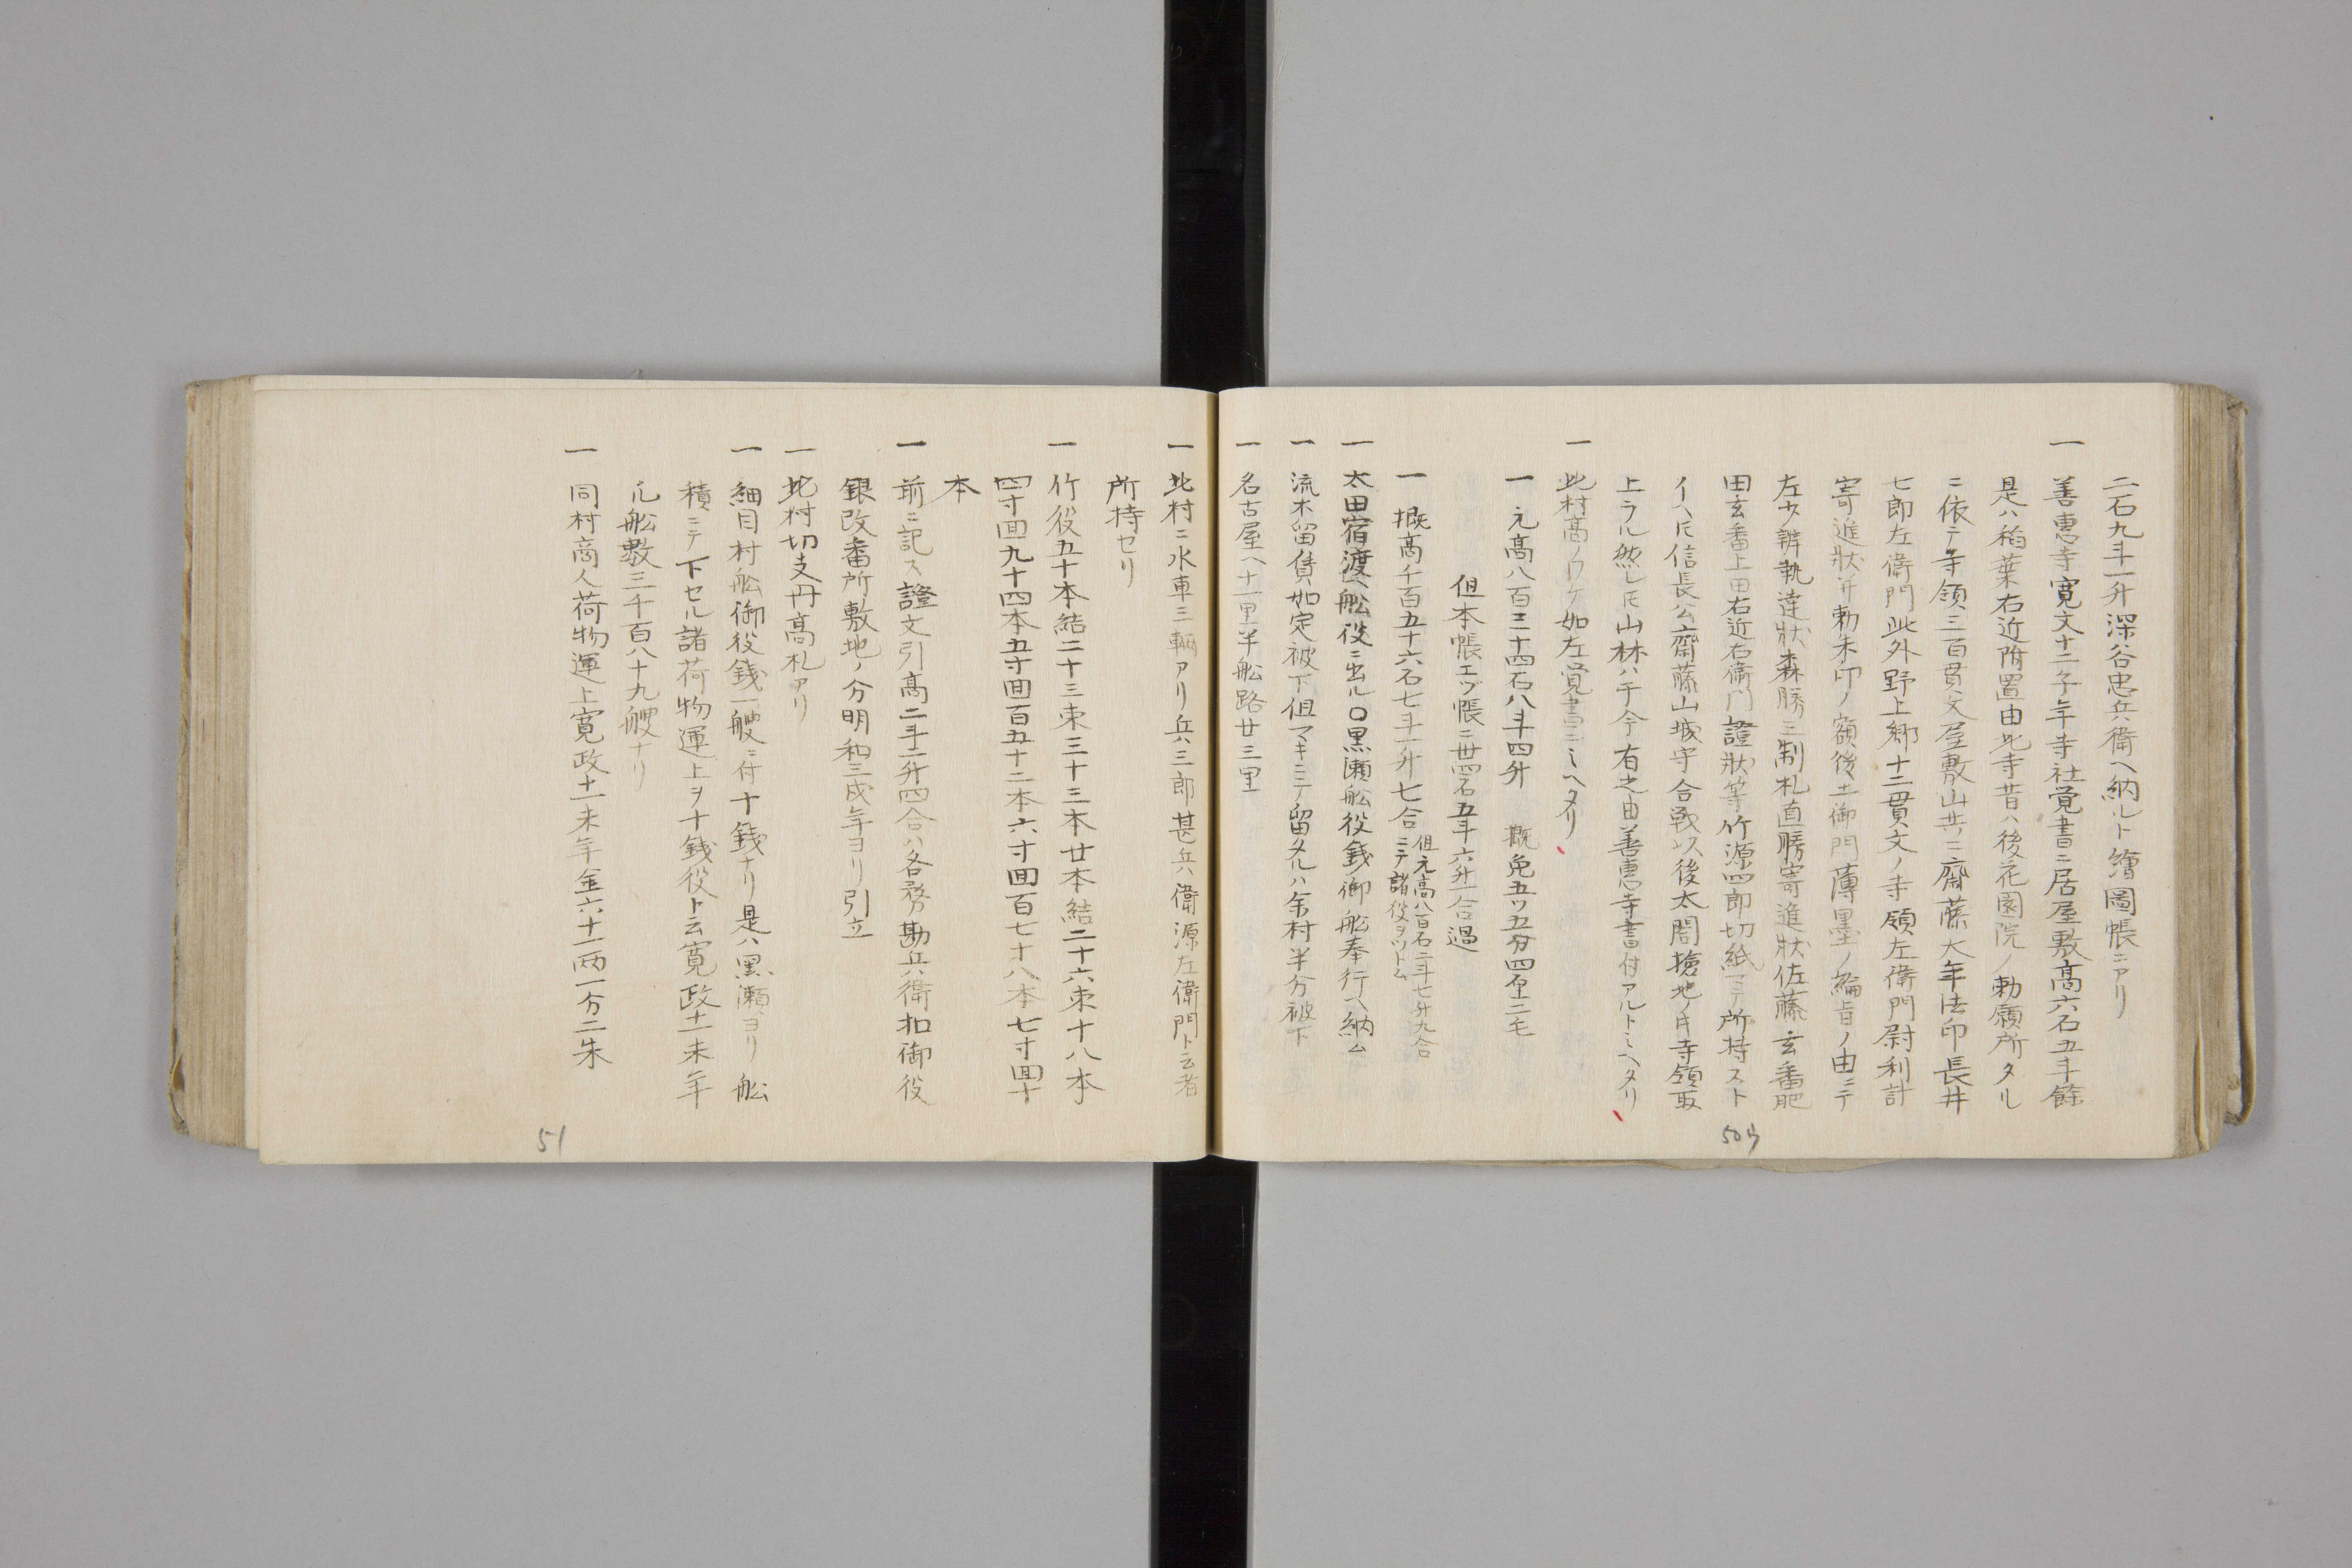 二石九斗一升深谷忠兵衛ヘ納ルト繪圖帳ニアリ
一 善惠寺寛文十二子年寺社覚書ニ居屋敷髙六石五斗餘
是ハ稲葉右近附置由此寺昔ハ後花園院ノ勅願所タル
ニ依テ寺領三百貫文屋敷山共ニ齋藤大年法印長井
七郎左衛門此外野上郷十二貫文ノ寺領左衛門尉利計
寄進狀并勅朱印ノ額後土御門薄墨ノ綸旨ノ由ニテ
左少辨執達狀森勝三制札直勝寄進狀佐藤玄番肥
田玄番上田右近右衛門證狀等竹源四郎切紙ニテ所持スト
イヘ𪜈信長公齋藤山城守合戦以後太閤撿地ノ片寺領取
上ラル然レ𪜈山林ハ于今有之由善惠寺書付アルトミヘタリ
一 此村髙ノワケ如左覚書ニミヘタリ
一 元髙八百三十四石八斗四升 概免五ツ五分四厘二毛
但本帳エヅ帳ニ丗四石五斗六升一合過
一 概髙千百五十六石七斗一升七合 但元高八百石二斗七升九合
ニテ諸役ヲツトム
一 太田宿渡ヘ舩役ニ出ル○黒瀬舩役錢御舩奉行ヘ納ム
一 流木留賃如定被下但マキミニテ留タルハ余村半分被下
一 名古屋ヘ十一里半舩路廿三里
一 此村ニ水車三輌アリ兵三郎甚兵衛源左衛門ト云者
所持セリ
一 竹役五十本結二十三束三十三本廿本結二十六束十八本
四寸回九十四本五寸回百五十二本六寸回百七十八本七寸回十
本
一 前ニ記ス證文引髙二斗二升四合ハ各務勘兵衛扣御役
銀改番所敷地ノ分明和三戌年ヨリ引立
一 此村切支丹髙札アリ
一 細目村舩御役錢一艘ニ付十錢ナリ是ハ黒瀬ヨリ舩
積ニテ下セル諸荷物運上ヲ十錢役ト云寛政十一未年
ル舩數三千百八十九艘ナリ
一 同村商人荷物運上寛政十一未年金六十一両一分二朱
50ウ
51